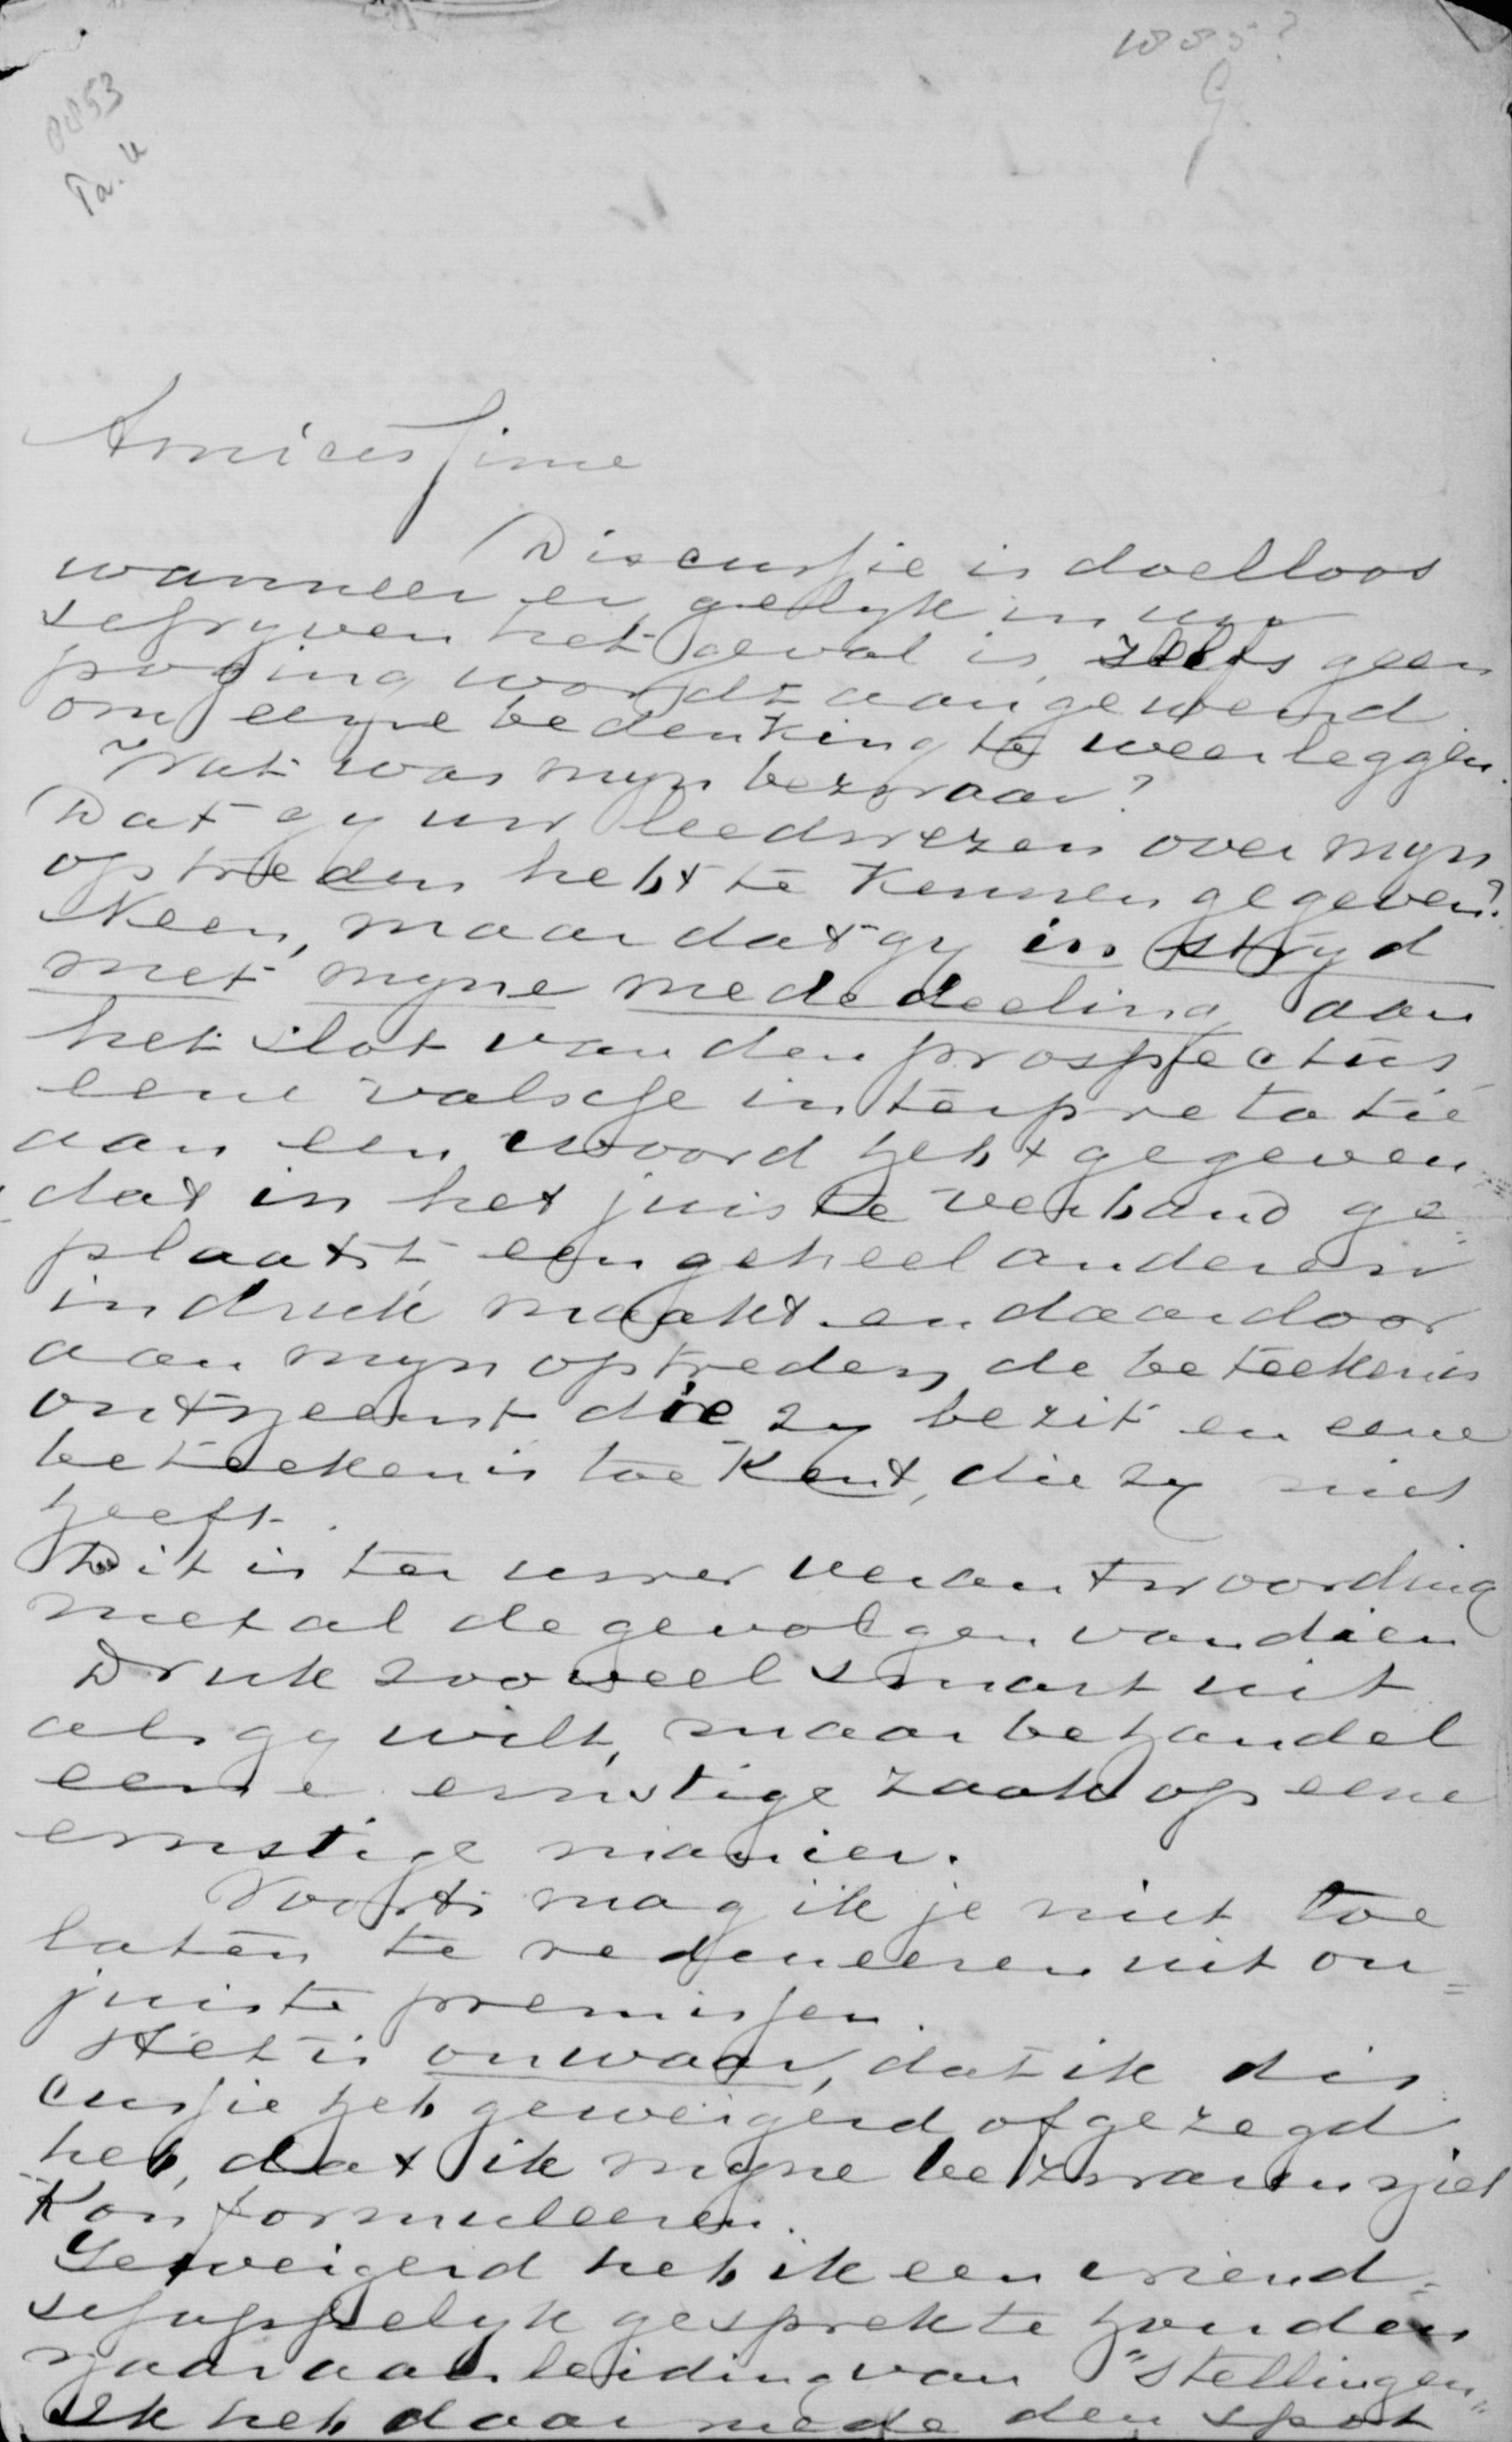 1885?
G.
0853
Pa. U
Amicissime
Discussie is doelloos
wanneer er, gelyk in uw
schryven het geval is, zelfs geen
poging wordt aangewend
om eene bedenking te weerleggen.
Wat was myn bezwaar?
Dat gy uw leedwezen over myn
optreden hebt te kennen gegeven?
Neen, maar dat gy in stryd
met myne mededeeling aan
het slot van den prospectus
eene valsche interpretatie
aan een woord hebt gegeven
dat in het juiste verband ge=
plaatst, een geheel anderen
indruk maakt en daardoor
aan myn optreden de beteekenis
ontneemt die zy bezit en eene
beteekenis toekent, die zy niet
heeft.
Dit is ter uwer verantwoording
met al de gevolgen van dien
Druk zooveel smart uit
als gy wilt, maar behandel
eene ernstige zaak op eene
ernstige manier.
Voorts mag ik je niet toe
laten te redeneeren uit on=
juiste premissen.
Het is onwaar, dat ik dis
cussie heb geweigerd of gezegd
heb, dat ik myne bezwaren niet
kon formuleeren.
Geweigerd heb ik een vriend=
schappelyk gesprek te houden
naar aanleiding van "Stellingen"
Ik heb daarmede den spot